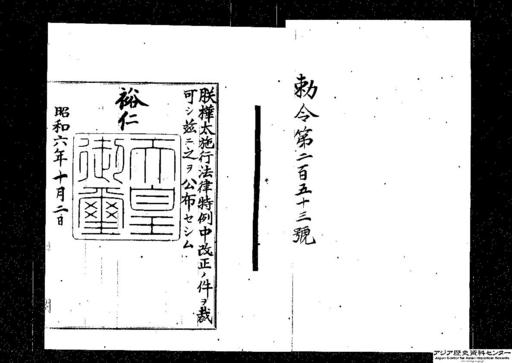 勅令第二百五十三號
朕樺太施行法律特例中改正ノ件ヲ裁
可シ茲ニ之ヲ公布セシム
裕仁
天皇御璽
昭和六年十月二日
アジア歴史資料センター
Japan Center for Asian Historical Records